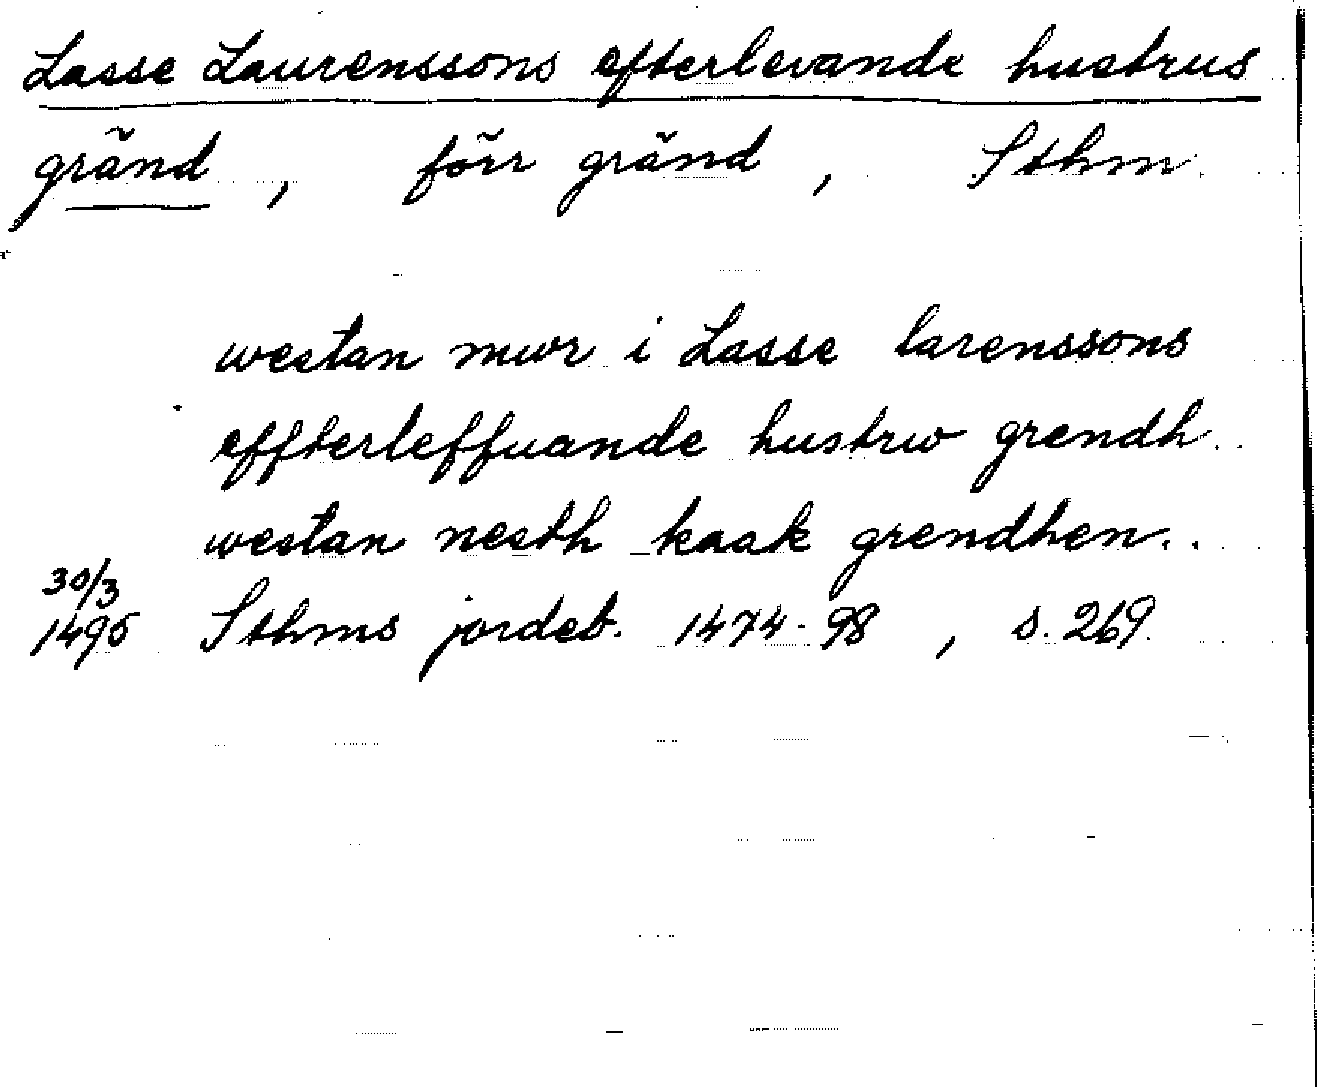 Lasse Laurenssons efterlevande hustrus
gränd, förr gränd, Sthm
westan mwr i Lasse larenssons
effterleffuande hustrw grendh..
westan nesth kaak grendhen..
30/3
1495 Sthms jordeb. 1474-98, s. 269